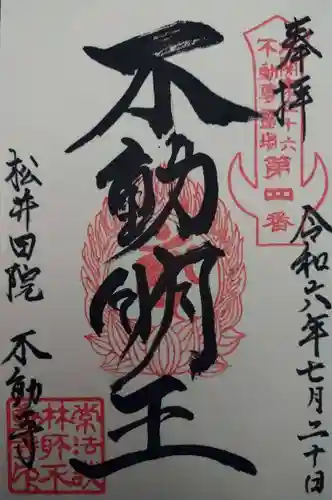 奉拝
令和六年七月二十日
不動尊霊場
第一番
不動明王
松井田院 不動寺